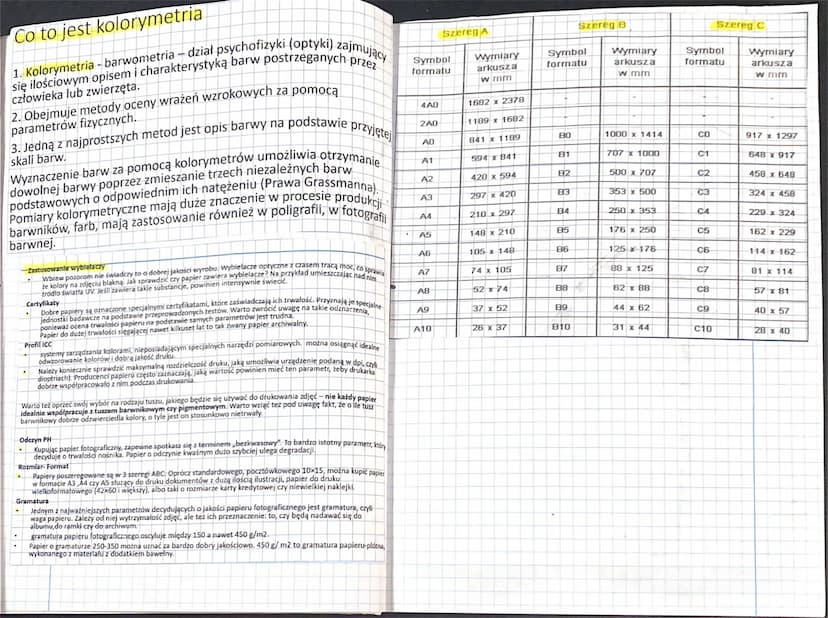 Co to jest kolorymetria
1. Kolorymetria - barwometria – dział psychofizyki (optyki) zajmujący
się ilościowym opisem i charakterystyką barw postrzeganych przez
człowieka lub zwierzęta.
2. Obejmuje metody oceny wrażeń wzrokowych za pomocą
parametrów fizycznych.
3. Jedną z najprostszych metod jest opis barwy na podstawie przyjętej
skali barw.
Wyznaczenie barw za pomocą kolorymetrów umożliwia otrzymanie
dowolnej barwy poprzez zmieszanie trzech niezależnych barw
podstawowych o odpowiednim ich natężeniu (Prawa Grassmanna).
Pomiary kolorymetryczne mają duże znaczenie w procesie produkcji
barwników, farb, mają zastosowanie również w poligrafii, w fotografii
barwnej.
Zastosowanie wybielaczy
• Wbrew pozorom nie świadczy to o dobrej jakości wyrobu. Wybielacze optyczne z czasem tracą moc, co sprawia
że kolory na zdjęciu blakną. Jak sprawdzić czy papier zawiera wybielacze? Na przykład umieszczając nad nim
źródło światła UV. Jeśli zawiera takie substancje, powinien intensywnie świecić.
Certyfikaty
• Dobre papiery są oznaczone specjalnymi certyfikatami, które zaświadczają ich trwałość. Przyznają je specjalne
jednostki badawcze na podstawie przeprowadzonych testów. Warto zwrócić uwagę na takie odznaczenia,
ponieważ ocena trwałości papieru na podstawie samych parametrów jest trudna.
Papier do dużej trwałości sięgającej nawet kilkuset lat to tak zwany papier archiwalny.
Profil ICC
• systemy zarządzania kolorami, nieposiadającym specjalnych narzędzi pomiarowych. można osiągnąć idealne
odwzorowanie kolorów i dobrą jakość druku.
• Należy koniecznie sprawdzić maksymalną rozdzielczość druku, jaką umożliwia urządzenie podaną w dpi, czyli
dioptriach). Producenci papieru często zaznaczają, jaką wartość powinien mieć ten parametr, żeby drukarka
dobrze współpracowało z nim podczas drukowania.
Warto też oprzeć swój wybór na rodzaju tuszu, jakiego będzie się używać do drukowania zdjęć – nie każdy papier
idealnie współpracuje z tuszem barwnikowym czy pigmentowym. Warto wziąć też pod uwagę fakt, że o ile tusz
barwnikowy dobrze odzwierciedla kolory, o tyle jest on stosunkowo nietrwały.
Odczyn PH
• Kupując papier fotograficzny, zapewne spotkasz się z terminem „bezkwasowy”. To bardzo istotny parametr, który
decyduje o trwałości nośnika. Papier o odczynie kwaśnym dużo szybciej ulega degradacji.
Rozmiar- Format
• Papiery poszeregowane są w 3 szeregi ABC: Oprócz standardowego, pocztówkowego 10×15, można kupić papier
w formacie A3 ,A4 czy A5 służący do druku dokumentów z dużą ilością ilustracji, papier do druku
wielkoformatowego (42×60 i większy), albo taki o rozmiarze karty kredytowej czy niewielkiej naklejki.
Gramatura
• Jednym z najważniejszych parametrów decydujących o jakości papieru fotograficznego jest gramatura, czyli
waga papieru. Zależy od niej wytrzymałość zdjęć, ale też ich przeznaczenie: to, czy będą nadawać się do
albumu,do ramki czy do archiwum.
• gramatura papieru fotograficznego oscyluje między 150 a nawet 450 g/m2.
• Papier o gramaturze 250-350 można uznać za bardzo dobry jakościowo. 450 g/ m2 to gramatura papieru-płótna,
wykonanego z materiału z dodatkiem bawełny.
Szereg A Szereg B Szereg C
Symbol formatu Wymiary arkusza w mm Symbol formatu Wymiary arkusza w mm Symbol formatu Wymiary arkusza w mm
4A0 1682 x 2378 - - - -
2A0 1189 x 1682 - - - -
A0 841 x 1189 B0 1000 x 1414 C0 917 x 1297
A1 594 x 841 B1 707 x 1000 C1 648 x 917
A2 420 x 594 B2 500 x 707 C2 458 x 648
A3 297 x 420 B3 353 x 500 C3 324 x 458
A4 210 x 297 B4 250 x 353 C4 229 x 324
A5 148 x 210 B5 176 x 250 C5 162 x 229
A6 105 x 148 B6 125 x 176 C6 114 x 162
A7 74 x 105 B7 88 x 125 C7 81 x 114
A8 52 x 74 B8 62 x 88 C8 57 x 81
A9 37 x 52 B9 44 x 62 C9 40 x 57
A10 26 x 37 B10 31 x 44 C10 28 x 40